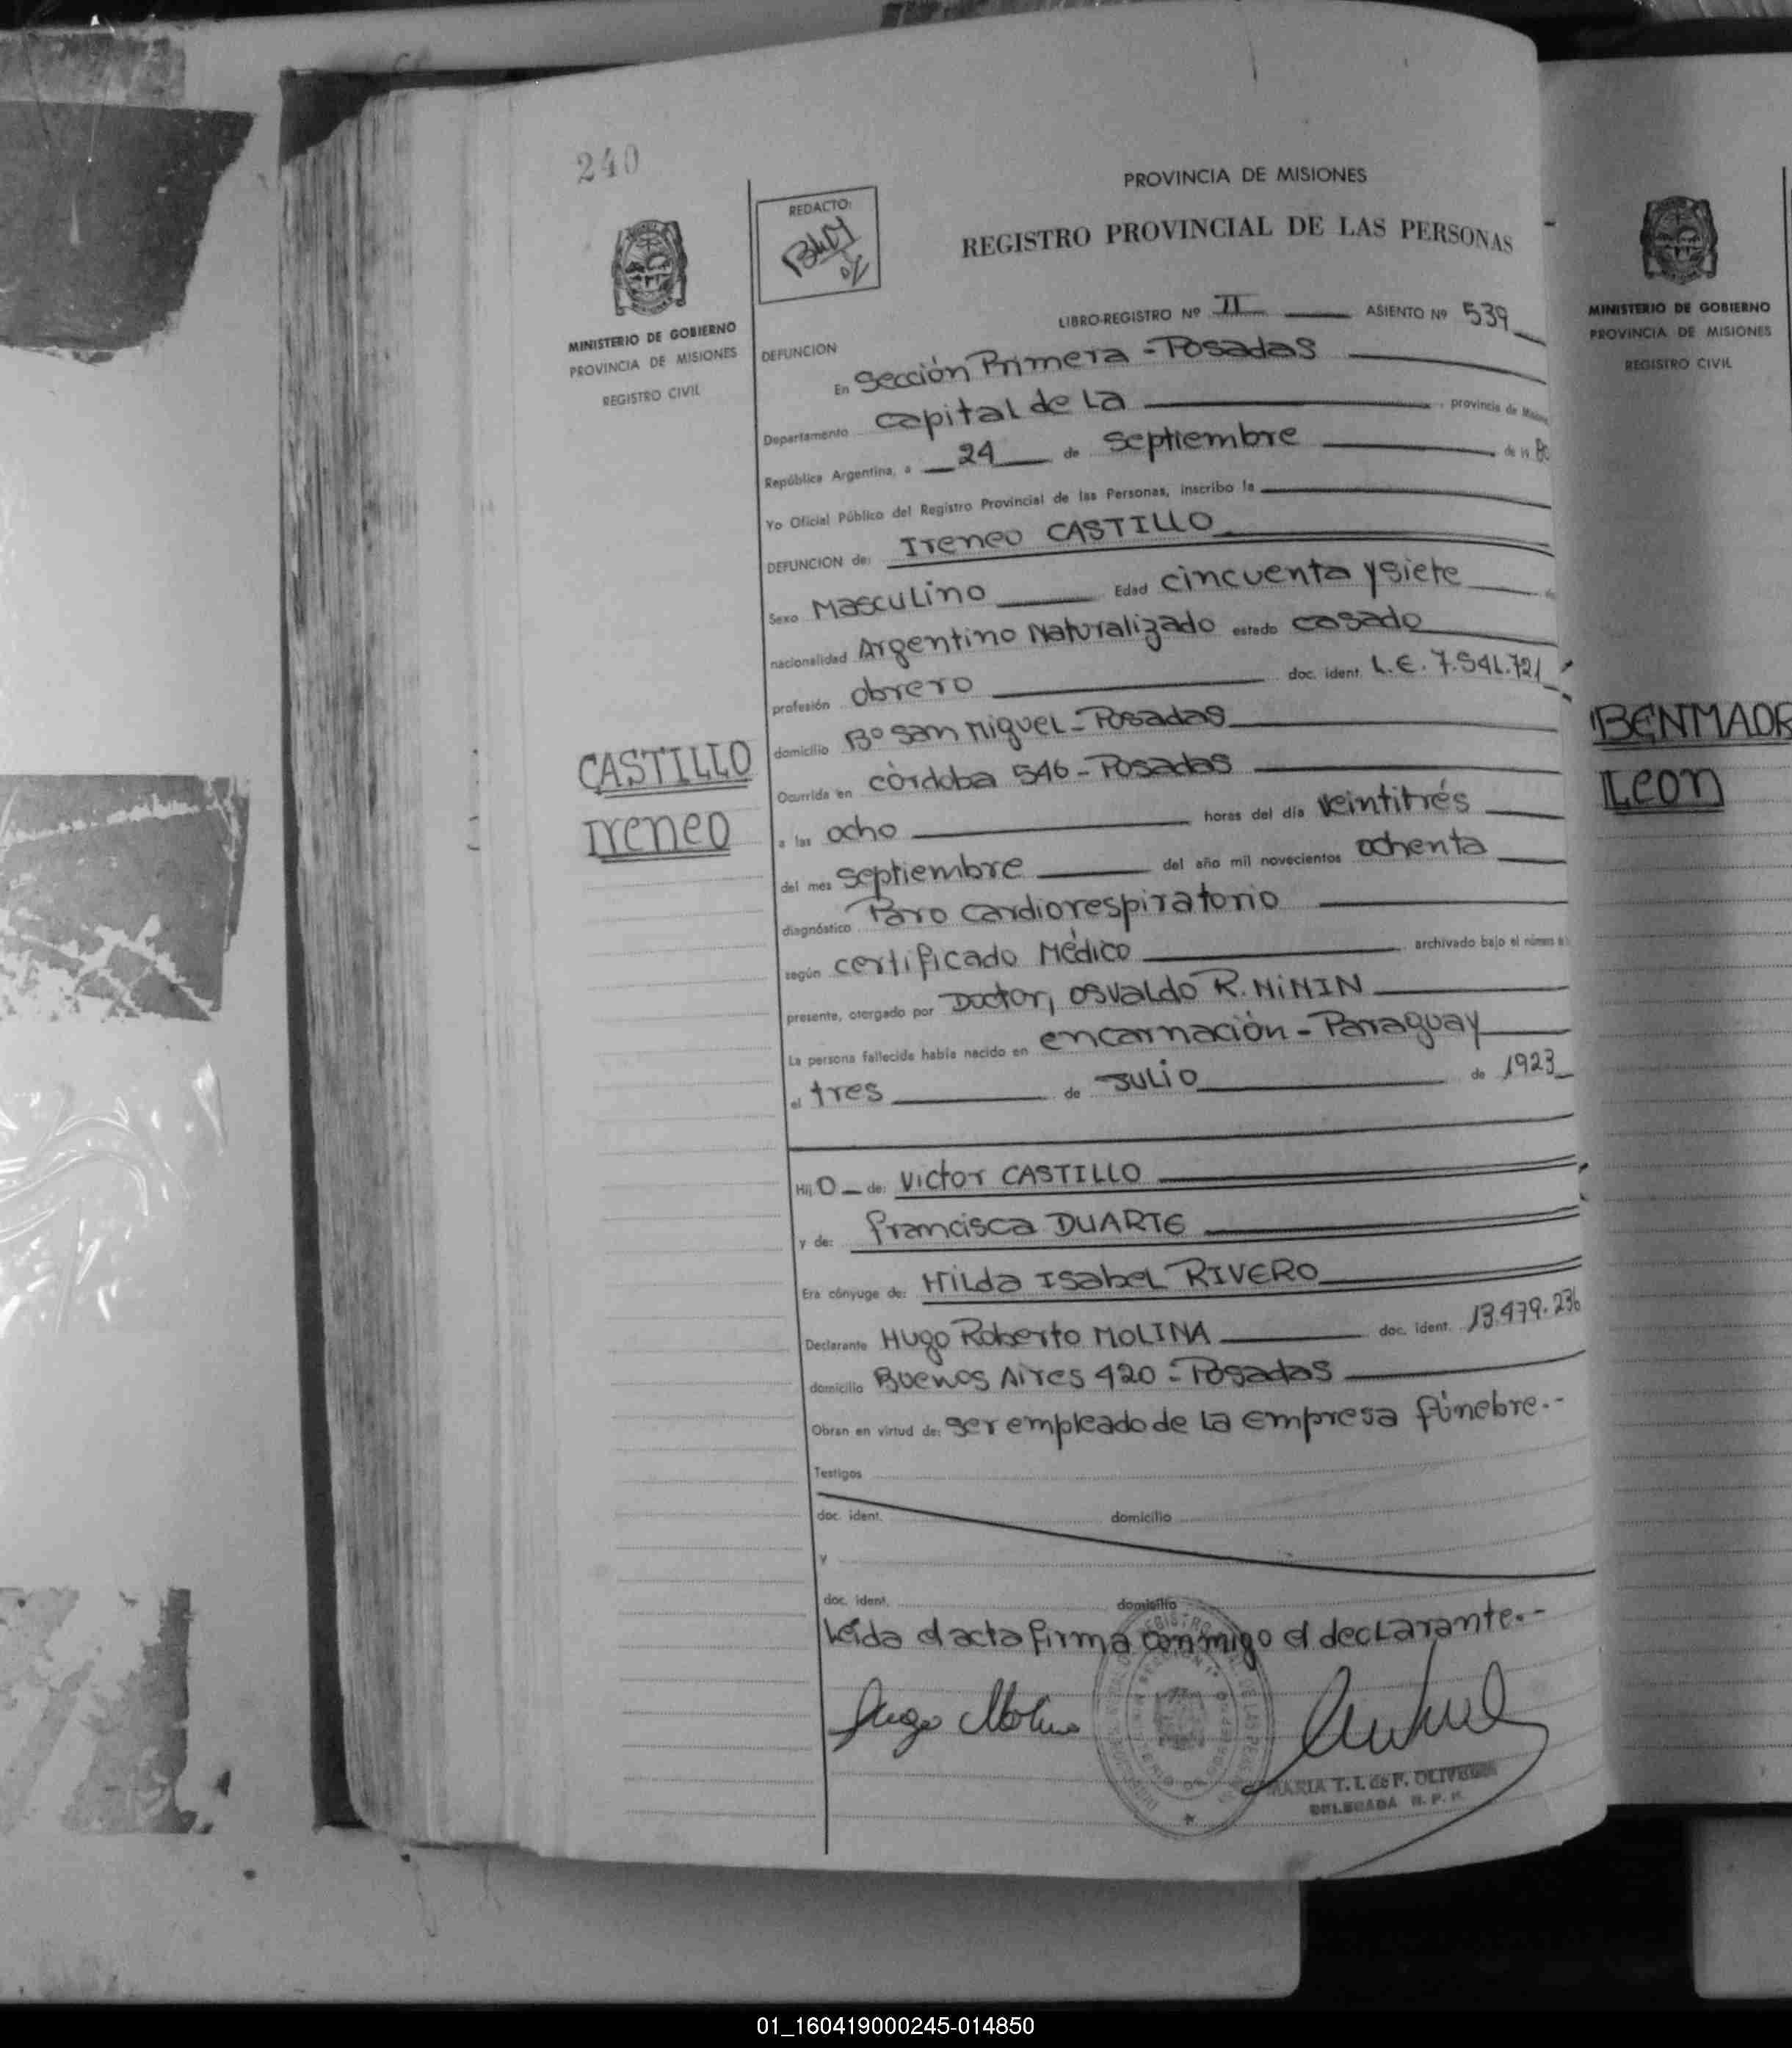 240
MINISTERIO DE GOBIERNO
PROVINCIA DE MISIONES
REGISTRO CIVIL
REDACTO:
PROVINCIA DE MISIONES
REGISTRO PROVINCIAL DE LAS PERSONAS
LIBRO-REGISTRO Nº II ASIENTO Nº 539
DEFUNCION
En Sección Primera - Posadas
Departamento Capital de La , provincia de
República Argentina, a 24 de Septiembre de 19 80
Yo Oficial Público del Registro Provincial de las Personas, inscribo la
DEFUNCION de: Ireneo CASTILLO
Sexo Masculino Edad cincuenta y siete
nacionalidad Argentino Naturalizado estado casado
profesión obrero doc. ident. L.E. 7.541.721
domicilio Bº San Miguel - Posadas
CASTILLO
Ireneo
Ocurrida en còrdoba 546 - Posadas
a las ocho horas del día veintitrés
del mes septiembre del año mil novecientos ochenta
diagnóstico Paro cardiorespiratorio
según certificado Médico archivado bajo el número
presente, otorgado por Doctor, Osvaldo R. NiNIN
La persona fallecida había nacido en encarnaciòn - Paraguay
el tres de Julio de 1923
Hij o de: Victor CASTILLO
y de: francisca DUARTE
Era cónyuge de: Hilda Isabel RIVERO
Declarante Hugo Roberto MOLINA doc. ident. 13.479.236
domicilio Buenos Aires 420 - Posadas
Obran en virtud de: ser empleado de la empresa fúnebre.-
Testigos
doc. ident. domicilio
y
doc. ident. domicilio
Leída el acta firma conmigo el declarante.-
Hugo Molina
MARIA T. I. de F. OLIVEIRA
DELEGADA R. P. P.
MINISTERIO DE GOBIERNO
PROVINCIA DE MISIONES
REGISTRO CIVIL
BENMAOR
Leon
01_160419000245-014850